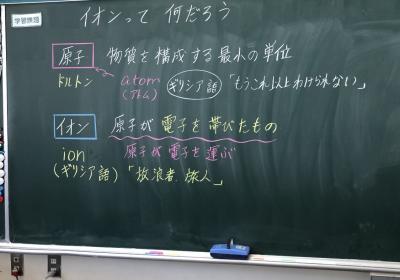 学習課題
イオンって 何だろう
原子 物質を構成する最小の単位
ドルトン atom ギリシア語 「もうこれ以上わけられない」
(アトム)
イオン 原子が 電子を帯びたもの
ion 原子が 電子を運ぶ
(ギリシア語) 「放浪者 旅人」